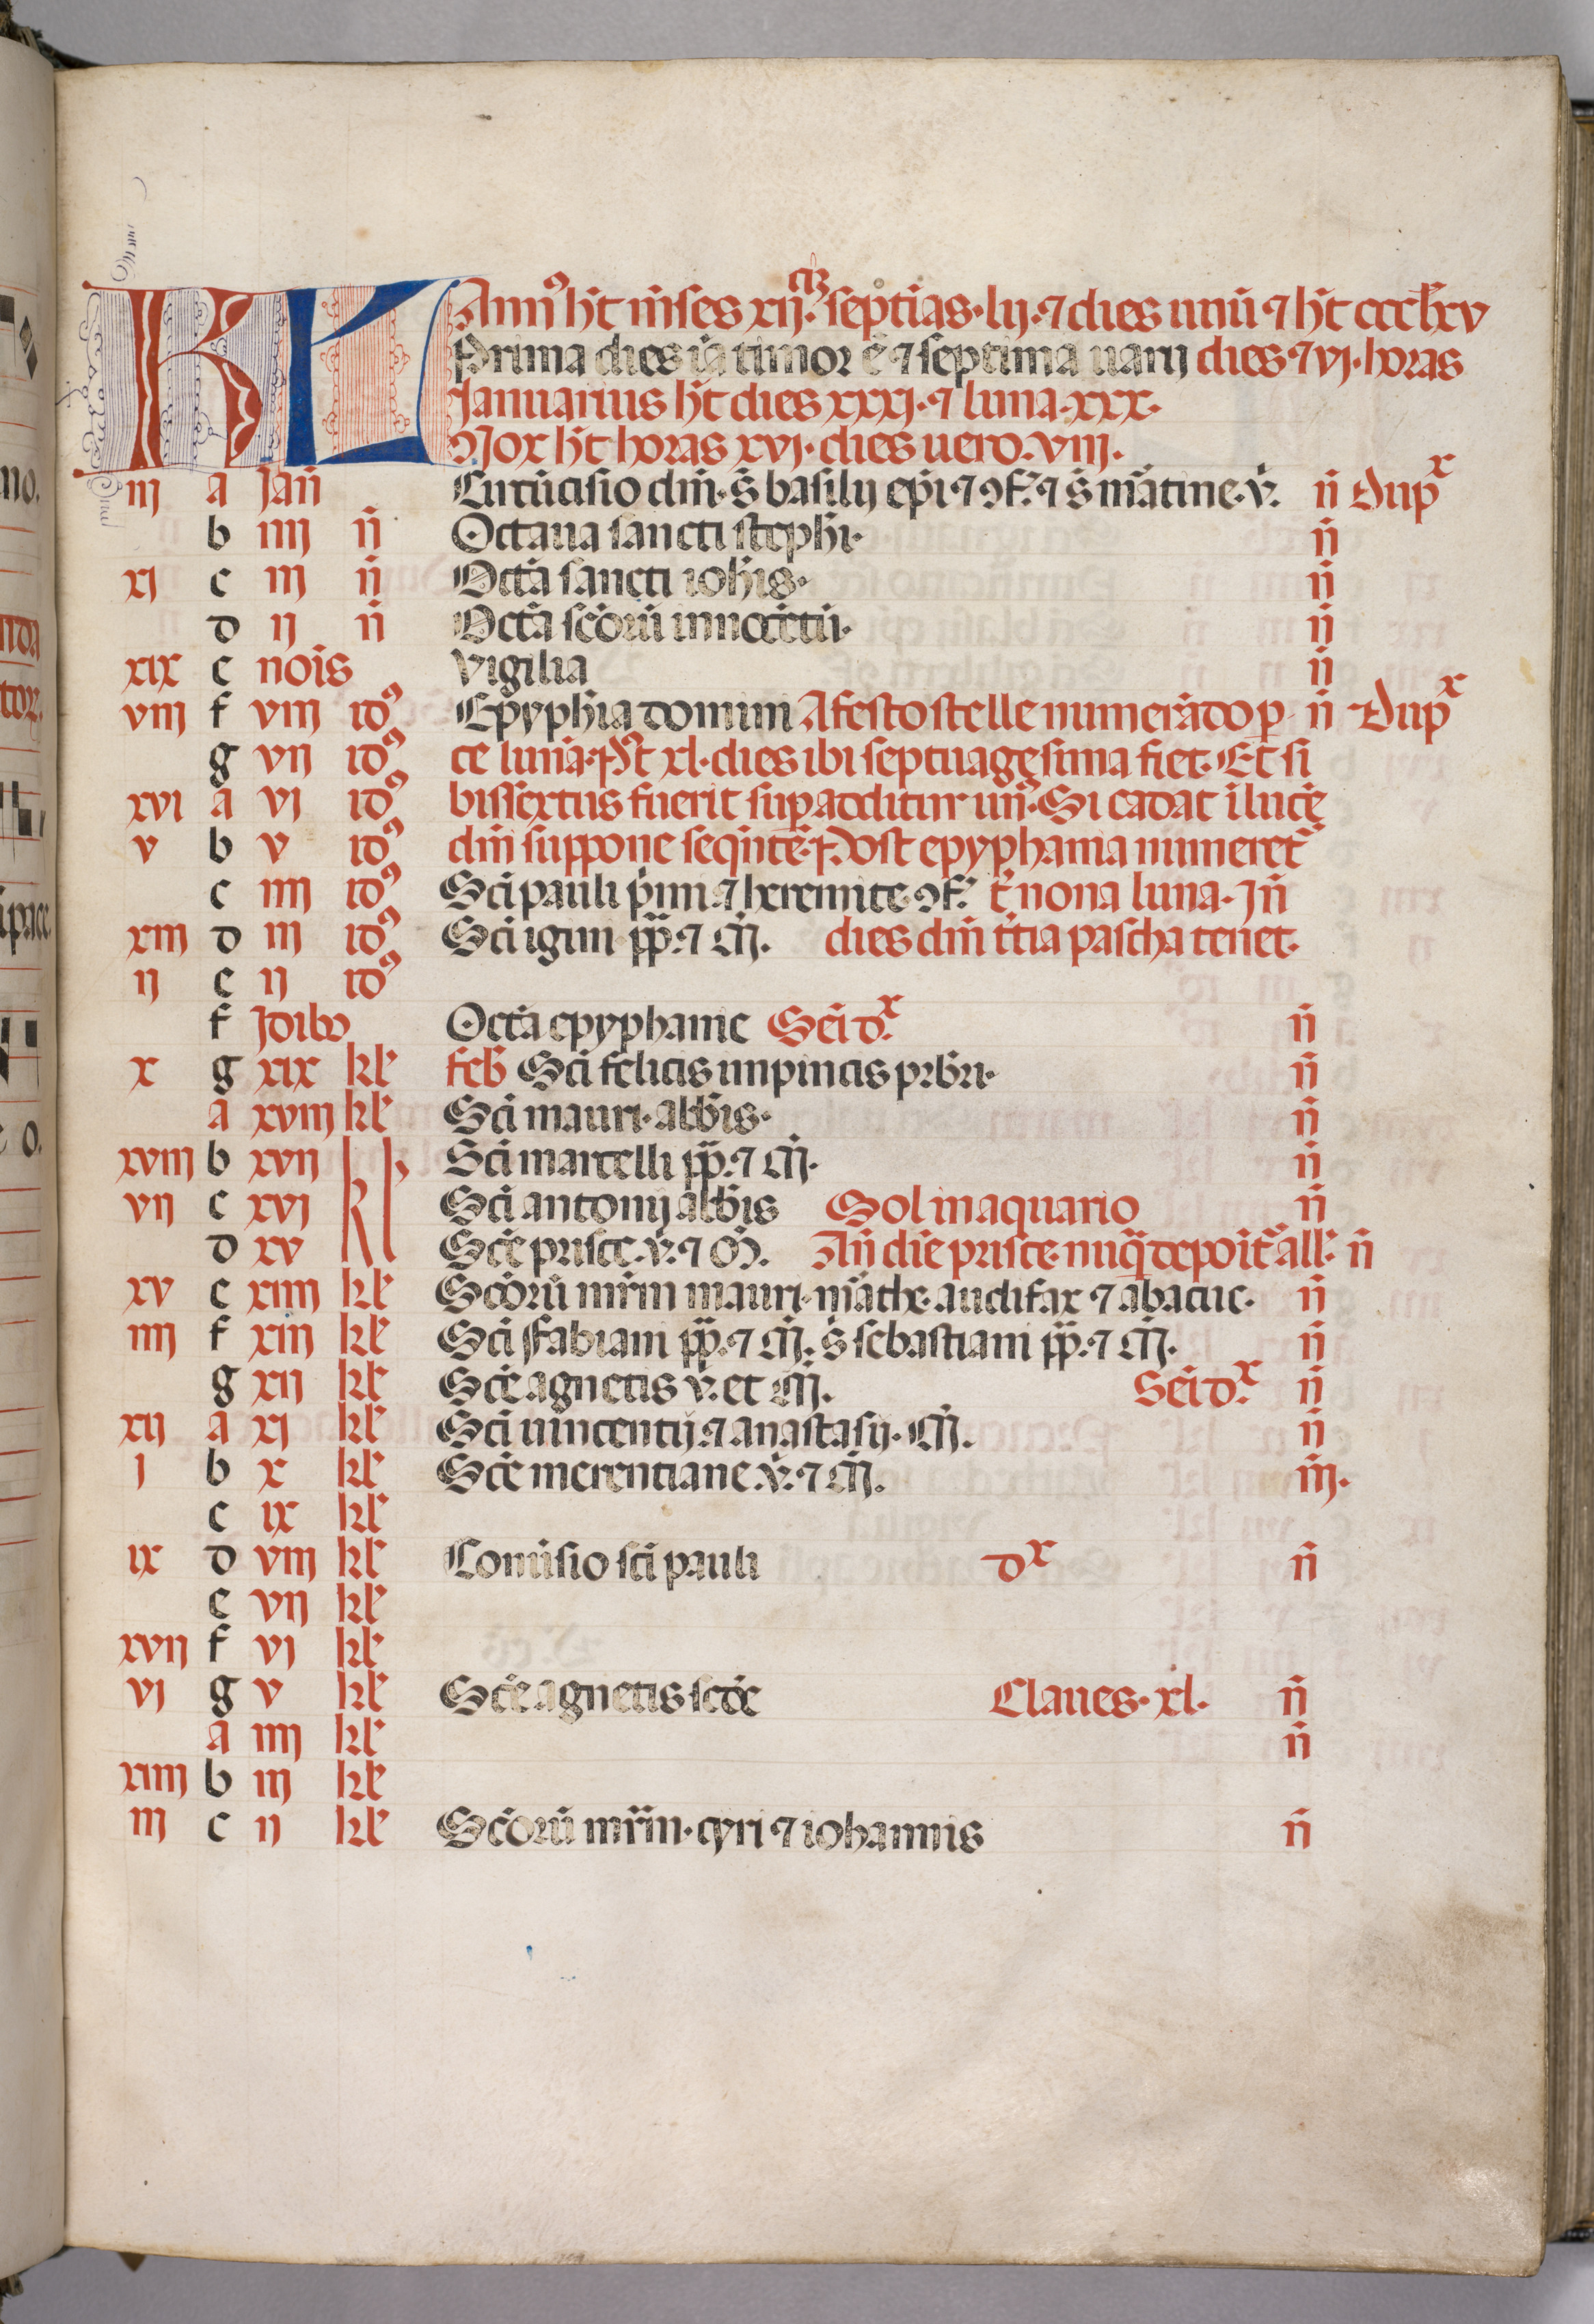 KL Annꝰ h̄t m̄ses xij. septīas. lij. ⁊ dies unū ⁊ h̄t ccclxv
Prima dies iā timor ē ⁊ septima uanij dies ⁊ vj. horas
Januarius h̄t dies xxxj. ⁊ luna. xxx.
Nox h̄t horas xvj. dies uero. viij.
iij a Jan̄ Circūcisio dn̄i. s̄ basilij ep̄i ⁊ ɔf. ⁊ s̄ m̄atine. v. n̄ Dupx
b iiij n̄ Octaua sancti steph̄i. n̄
xi c iij n̄ Octā sancti ioh̄is. n̄
d ij n̄ Octā sc̄orū innocētū. n̄
xix e nōis Vigilia n̄
viij f viij idꝰ Epyph̄ia domini A festo stelle numerādo ꝑ n̄ Dupx
g vij idꝰ te lunā. Pꝰt xl. dies ibi septuagesima fiet. Et si
xvi a vi idꝰ bissextus fuerit suꝑ additur un̄. Si cadat ī lucē
v b v idꝰ dn̄i suppone seqn̄tē. Post epyphania numeret᷑
c iiij idꝰ Sc̄i pauli p̄mi ⁊ heremite. ɔf. t᷑ nona luna. Jn̄
xiij d iij idꝰ Sc̄i igini pp̄. ⁊ m̄. dies dn̄i t̄tia pascha tenet.
ij e ij idꝰ
f Jdibꝰ Octā epyphanie Sēi dx
x g xix kl̄ feb̄ Sc̄i felicis in pincis prb̄ri. n̄
a xviij kl̄ Sc̄i mauri. abb̄is. n̄
xviij b xvij kl̄ Sc̄i marcelli pp̄. ⁊ m̄. n̄
vij c xvj Sc̄i antonij abb̄is Sol in aquario n̄
d xv Sc̄e prisce. v. ⁊ m̄. An̄ diē prisce. nūq̄ depoit᷑ all. n̄
xv e xiiij kl̄ Sc̄orū mr̄m mauri. m̄athe. audifax ⁊ abacuc. n̄
iiij f xiij kl̄ Sc̄i Fabiani pp̄. ⁊ m̄. s̄ sebastiani pp̄. ⁊ m̄. n̄
g xij kl̄ Sc̄e agnetis v. et m̄. Sēi dx n̄
xij a xj kl̄ Sc̄i uincentij. ⁊ anastasij. m̄. n̄
j b x kl̄ Sc̄e merentiane. v. ⁊ m̄. iij.
c ix kl̄
ix d viij kl̄ Conūsio sc̄i pauli dx n̄
e vij kl̄
xvij f vj kl̄
vj g v kl̄ Sc̄e agnetis sc̄de Claues. xl. n̄
a iiij kl̄ n̄
xiiij b iij kl̄
iij c ij kl̄ Sc̄orū mr̄m. cyri ⁊ iohannis n̄